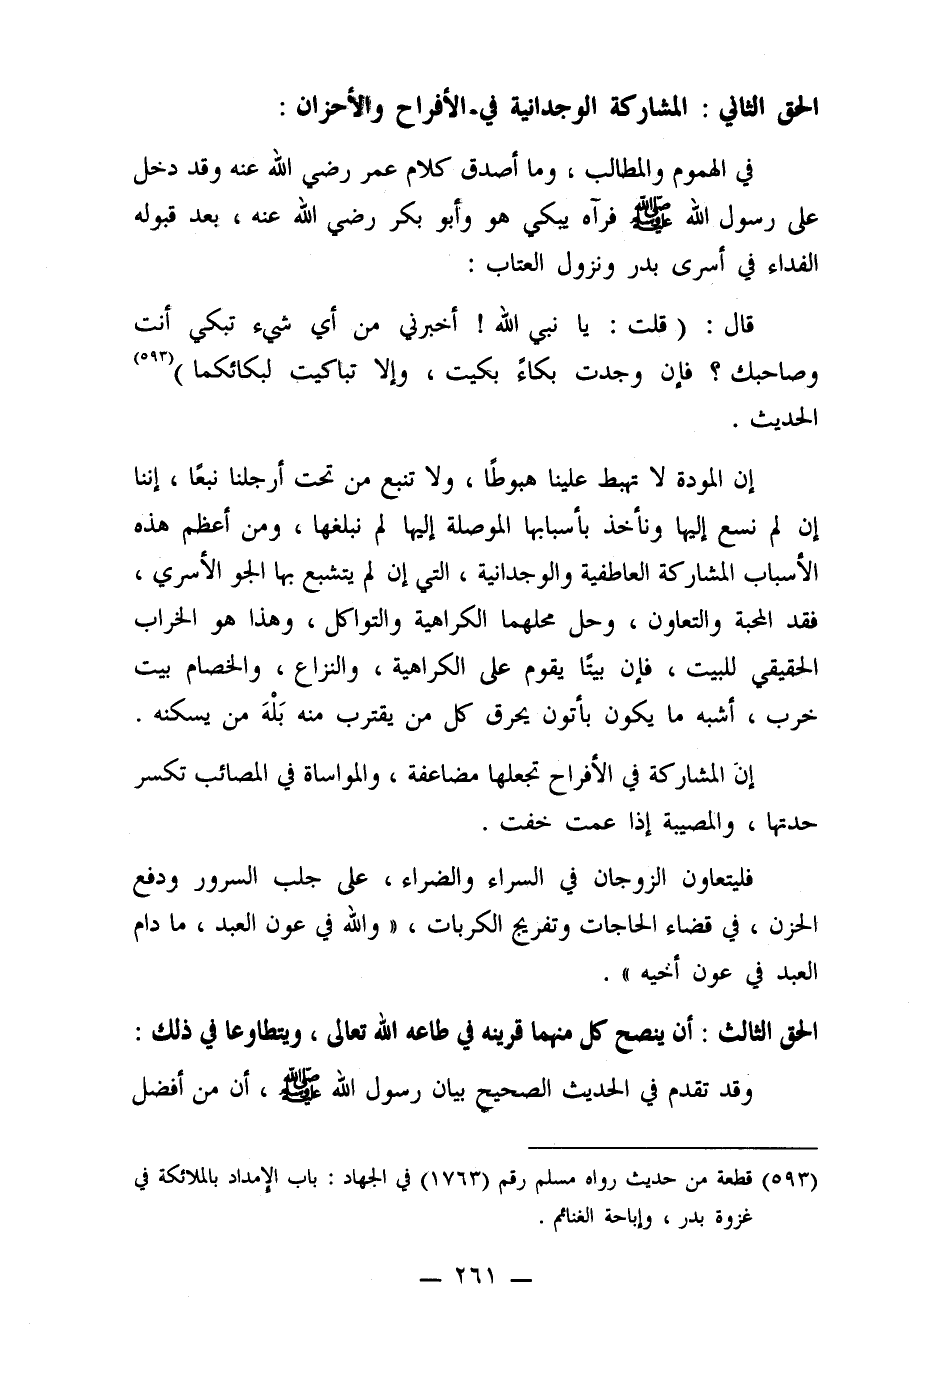 الحق الثاني : المشاركة الوجدانية في الأفراح والأحزان :
في الهموم والمطالب ، وما أصدق كلام عمر رضي الله عنه وقد دخل
على رسول الله ﷺ فرآه يبكي هو وأبو بكر رضي الله عنه ، بعد قبوله
الفداء في أسرى بدر ونزول العتاب :
قال : ( قلت : يا نبي الله ! أخبرني من أي شيء تبكي أنت
وصاحبك ؟ فإن وجدت بكاءً بكيت ، وإلا تباكيت لبكائكما )(٥٩٣)
الحديث .
إن المودة لا تهبط علينا هبوطًا ، ولا تنبع من تحت أرجلنا نبعًا ، إننا
إن لم نسع إليها ونأخذ بأسبابها الموصلة إليها لم نبلغها ، ومن أعظم هذه
الأسباب المشاركة العاطفية والوجدانية ، التي إن لم يتشبع بها الجو الأسري ،
فقد المحبة والتعاون ، وحل محلهما الكراهية والتواكل ، وهذا هو الخراب
الحقيقي للبيت ، فإن بيتًا يقوم على الكراهية ، والنزاع ، والخصام بيت
خرب ، أشبه ما يكون بأتون يحرق كل من يقترب منه بَلْهَ من يسكنه .
إنَ المشاركة في الأفراح تجعلها مضاعفة ، والمواساة في المصائب تكسر
حدتها ، والمصيبة إذا عمت خفت .
فليتعاون الزوجان في السراء والضراء ، على جلب السرور ودفع
الحزن ، في قضاء الحاجات وتفريج الكربات ، « والله في عون العبد ، ما دام
العبد في عون أخيه » .
الحق الثالث : أن ينصح كل منهما قرينه في طاعه الله تعالى ، ويتطاوعا في ذلك :
وقد تقدم في الحديث الصحيح بيان رسول الله ﷺ ، أن من أفضل
(٥٩٣) قطعة من حديث رواه مسلم رقم (١٧٦٣) في الجهاد : باب الإمداد بالملائكة في
غزوة بدر ، وإباحة الغنائم .
— ٢٦١ —